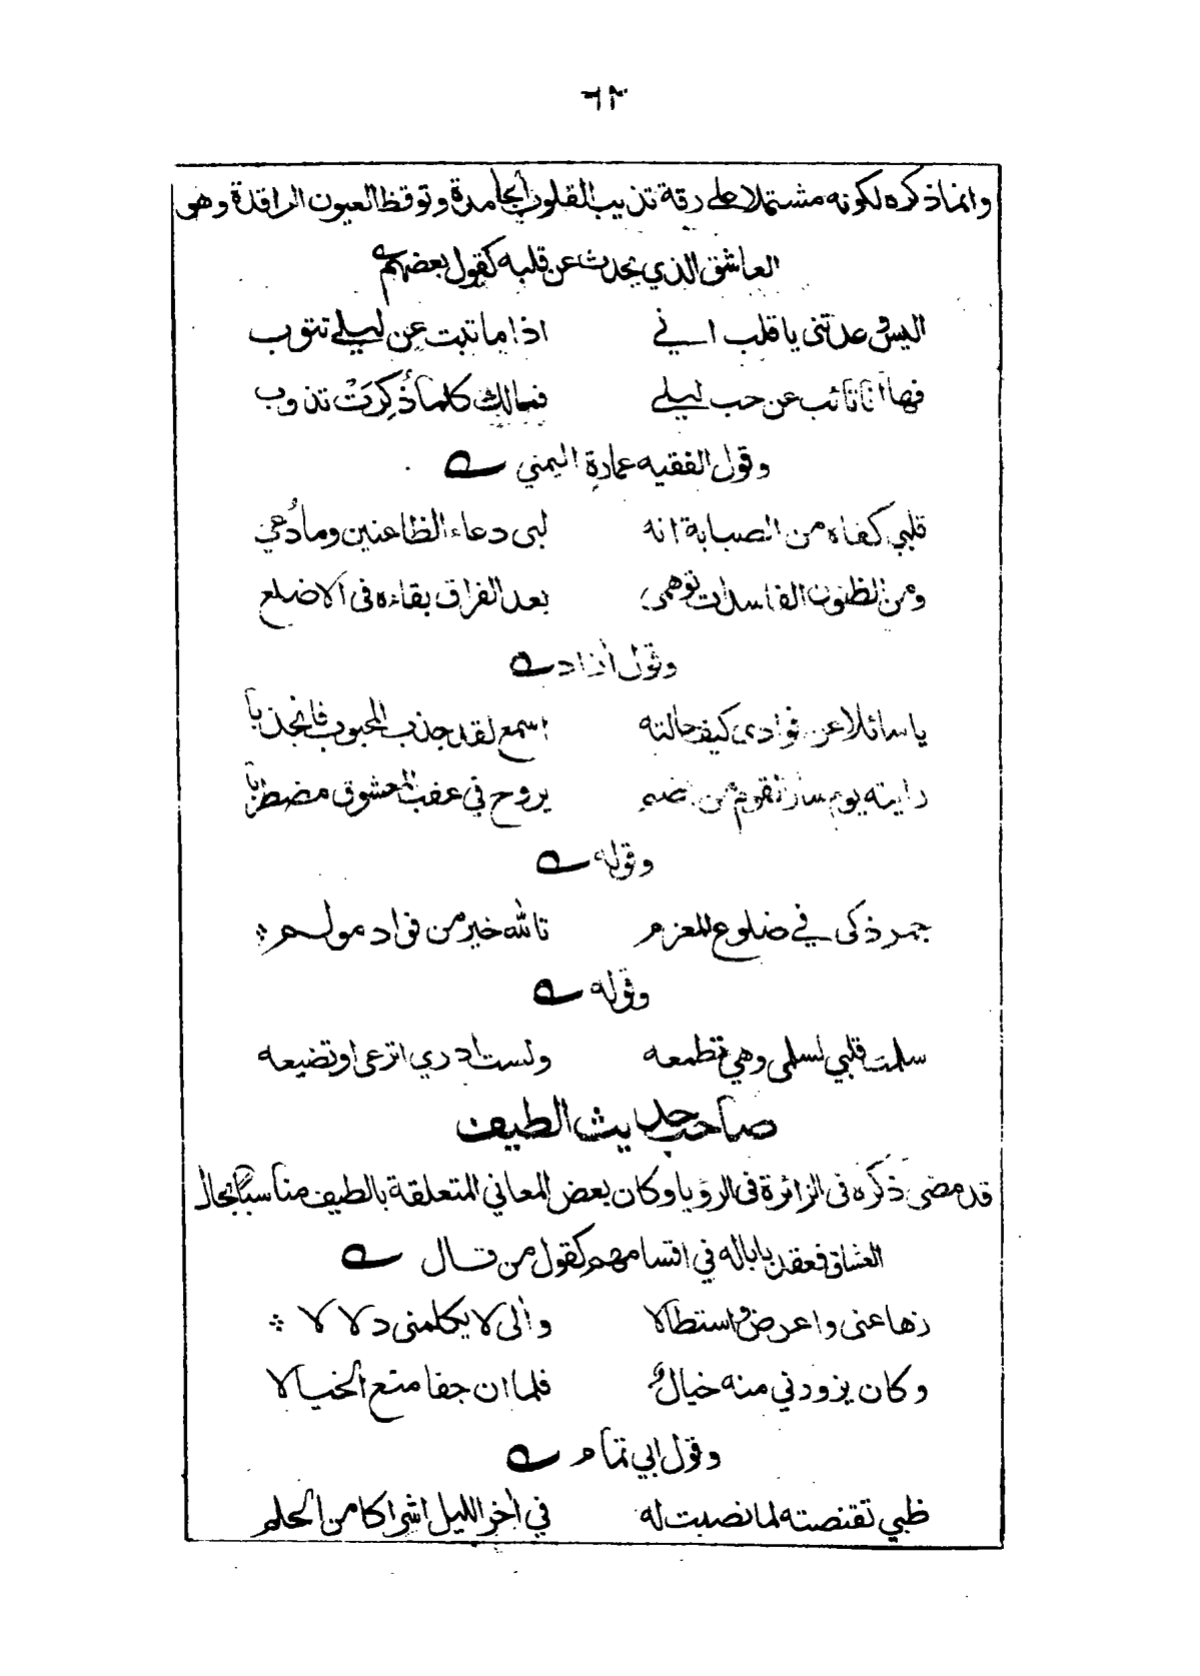 ٦٢
وانما ذكره لكونه مشتملا على رقة تذيب القلوب الجامدة وتوقظ العيون الراقدة وهى
العاشق الذي يحدث عن قلبه كقول بعضهم
اليس وعدتنى يا قلب اني اذا ما تبت عن ليلى تتوب
فها انا تائب عن حب ليلى فمالك كلما ذُكِرَتْ تذوب
وقول الفقيه عمارة اليمني
قلبي كفاه من الصبابة انه لبى دعاء الظاعنين وما دُعي
ومن الظنون الفاسدات توهمى بعد الفراق بقاءه فى الاضلع
وقول ازاد
يا سائلا عن فوادى كيف حالته اسمع لقد جذب المحبوب فانجذبا
رايته يوم سار القوم من اضم يروح في عقب المعشوق مضطربا
وقوله
جمر ذكى في ضلوع المغرم تالله خير من فواد مولم
وقوله
سلمت قلبي لسلمى وهي تطمعه ولست ادري اترعى او تضيعه
صاحب حديث الطيف
قد مضى ذكره فى الزائرة فى الرؤيا وكان بعض المعاني المتعلقة بالطيف مناسبا بحال
العشاق فعقد بابا له في اقسامهم كقول من قال
زها عنى واعرض واستطالا وآلى لا يكلمنى دلالا
وكان يزورني منه خيالٌ فلما ان جفا منع الخيالا
وقول ابي تمام
ظبي تقنصته لما نصبت له في آخر الليل اشراكا من الحلم